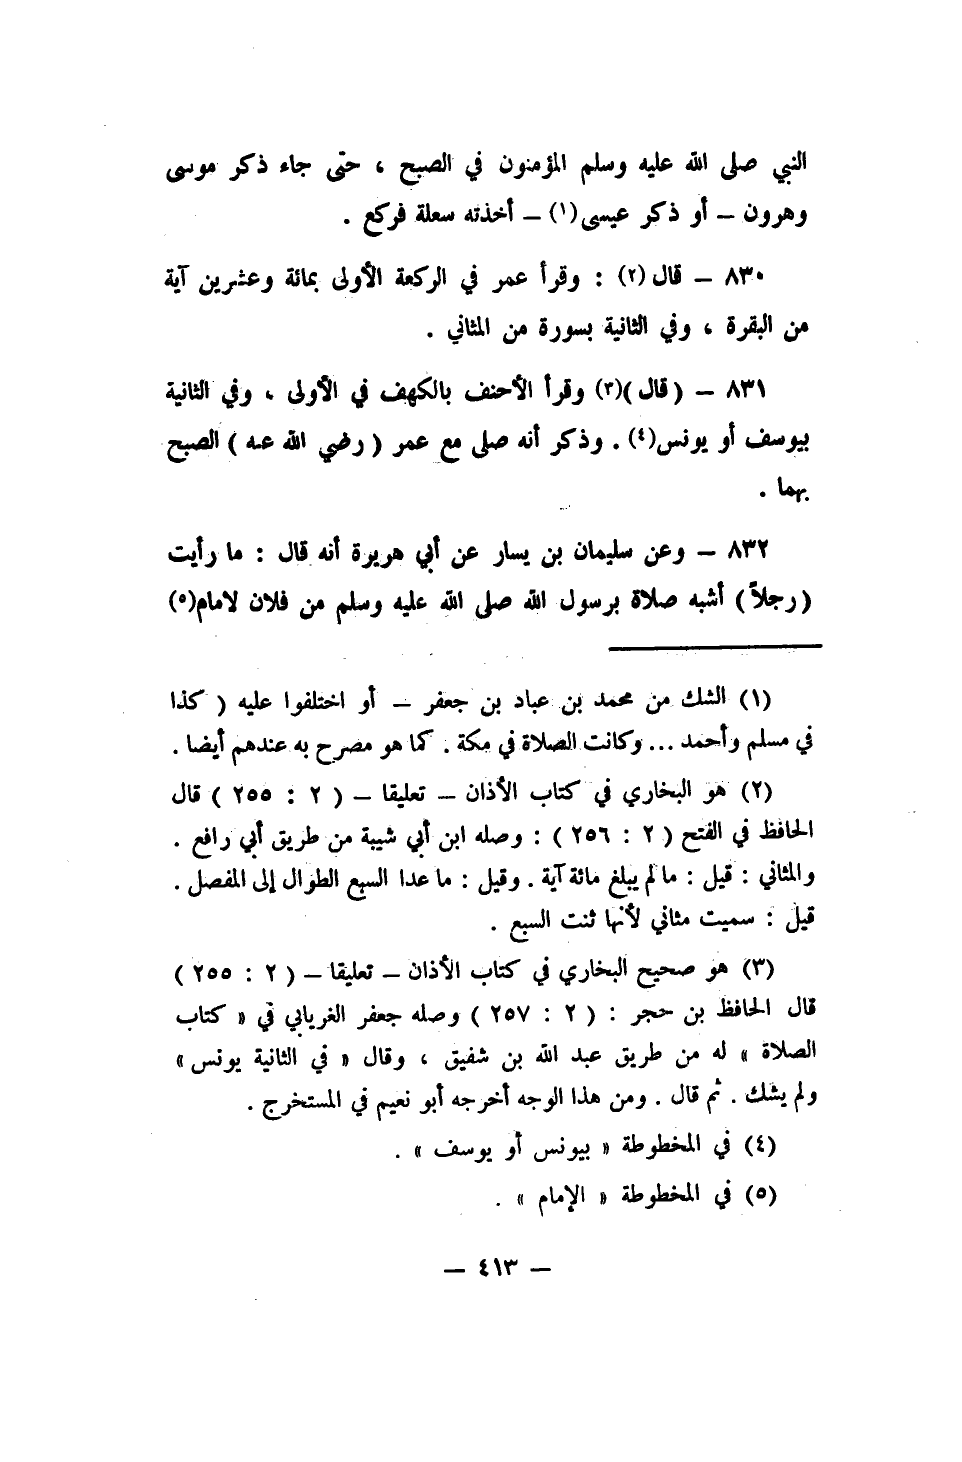 النبي صلى الله عليه وسلم المؤمنون في الصبح ، حتّى جاء ذكر موسى
وهرون – أو ذكر عيسى(١) – أخذته سعلة فركع .
٨٣٠ – قال(٢) : وقرأ عمر في الركعة الأولى بمائة وعشرين آية
من البقرة ، وفي الثانية بسورة من المثاني .
٨٣١ – (قال)(٣) وقرأ الأحنف بالكهف في الأولى ، وفي الثانية
بيوسف أو يونس(٤) . وذكر أنه صلى مع عمر ( رضي الله عنه ) الصبح
بهما .
٨٣٢ – وعن سليمان بن يسار عن أبي هريرة أنه قال : ما رأيت
(رجلاً) أشبه صلاة برسول الله صلى الله عليه وسلم من فلان لامام(٥)
(١) الشك من محمد بن عباد بن جعفر – أو اختلفوا عليه ( كذا
في مسلم وأحمد ... وكانت الصلاة في مكة . كما هو مصرح به عندهم أيضا .
(٢) هو البخاري في كتاب الأذان – تعليقا – ( ٢ : ٢٥٥ ) قال
الحافظ في الفتح ( ٢ : ٢٥٦ ) : وصله ابن أبي شيبة من طريق أبي رافع .
والمثاني : قيل : ما لم يبلغ مائة آية . وقيل : ما عدا السبع الطوال إلى المفصل .
قيل : سميت مثاني لأنها ثنت السبع .
(٣) هو صحيح البخاري في كتاب الأذان – تعليقا – ( ٢ : ٢٥٥ )
قال الحافظ بن حجر : ( ٢ : ٢٥٧ ) وصله جعفر الغريابي في « كتاب
الصلاة » له من طريق عبد الله بن شفيق ، وقال « في الثانية يونس »
ولم يشك . ثم قال . ومن هذا الوجه أخرجه أبو نعيم في المستخرج .
(٤) في المخطوطة « بيونس أو يوسف » .
(٥) في المخطوطة « الإمام » .
– ٤١٣ –